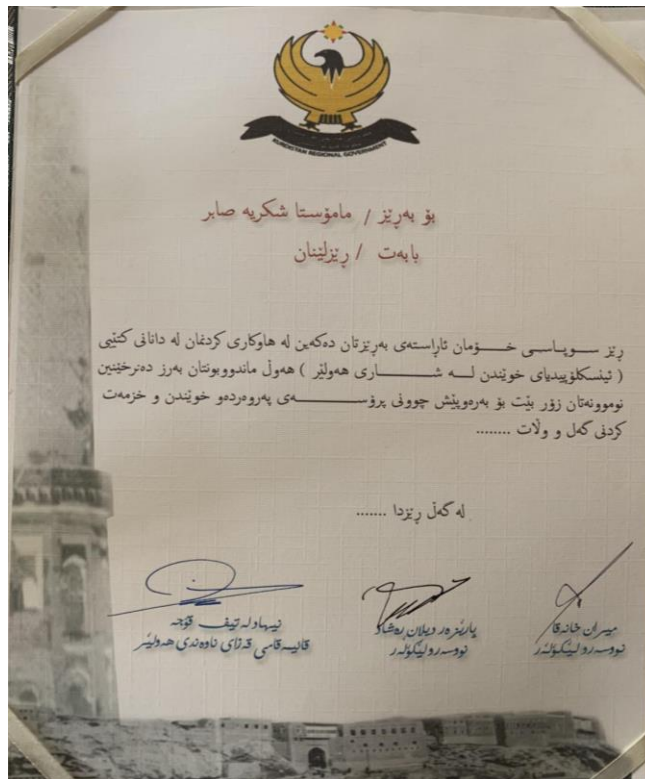 KURDISTAN REGIONAL GOVERNMENT
بۆ بەڕێز / مامۆستا شکریە صابر
بابەت / ڕێزلێنان
ڕێز سوپاسی خۆمان ئاراستەی بەڕێزتان دەکەین لە هاوکاری کردنمان لە دانانی کتێبی
( ئینسکلۆپیدیای خوێندن لە شاری هەولێر ) هەوڵ ماندووبونتان بەرز دەنرخێنین
نموونەتان زۆر بێت بۆ بەرەوپێش چوونی پرۆسەی پەروەردەو خوێندن و خزمەت
کردنی گەل و وڵات ........
لە گەڵ ڕێزدا .......
میران خانەقا
نووسەر و لێکۆڵەر
پارێزەر دیلان ڕەشاد
نووسەر و لێکۆڵەر
نیهاد لەتیف قۆجە
قایمقامی قەزای ناوەندی هەولێر